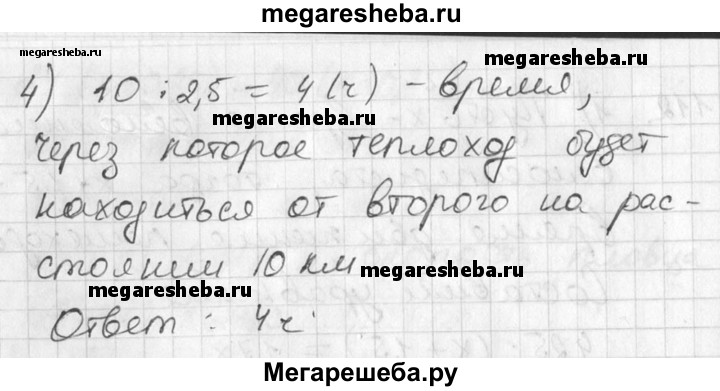 megaresheba.ru
megaresheba.ru
megaresheba.ru
4) 10 : 2,5 = 4 (ч) - время,
megaresheba.ru
через которое теплоход будет
находиться от второго на рас-
стоянии 10 км
megaresheba.ru
megaresheba.ru
Ответ: 4 ч.
Мегарешеба.ру